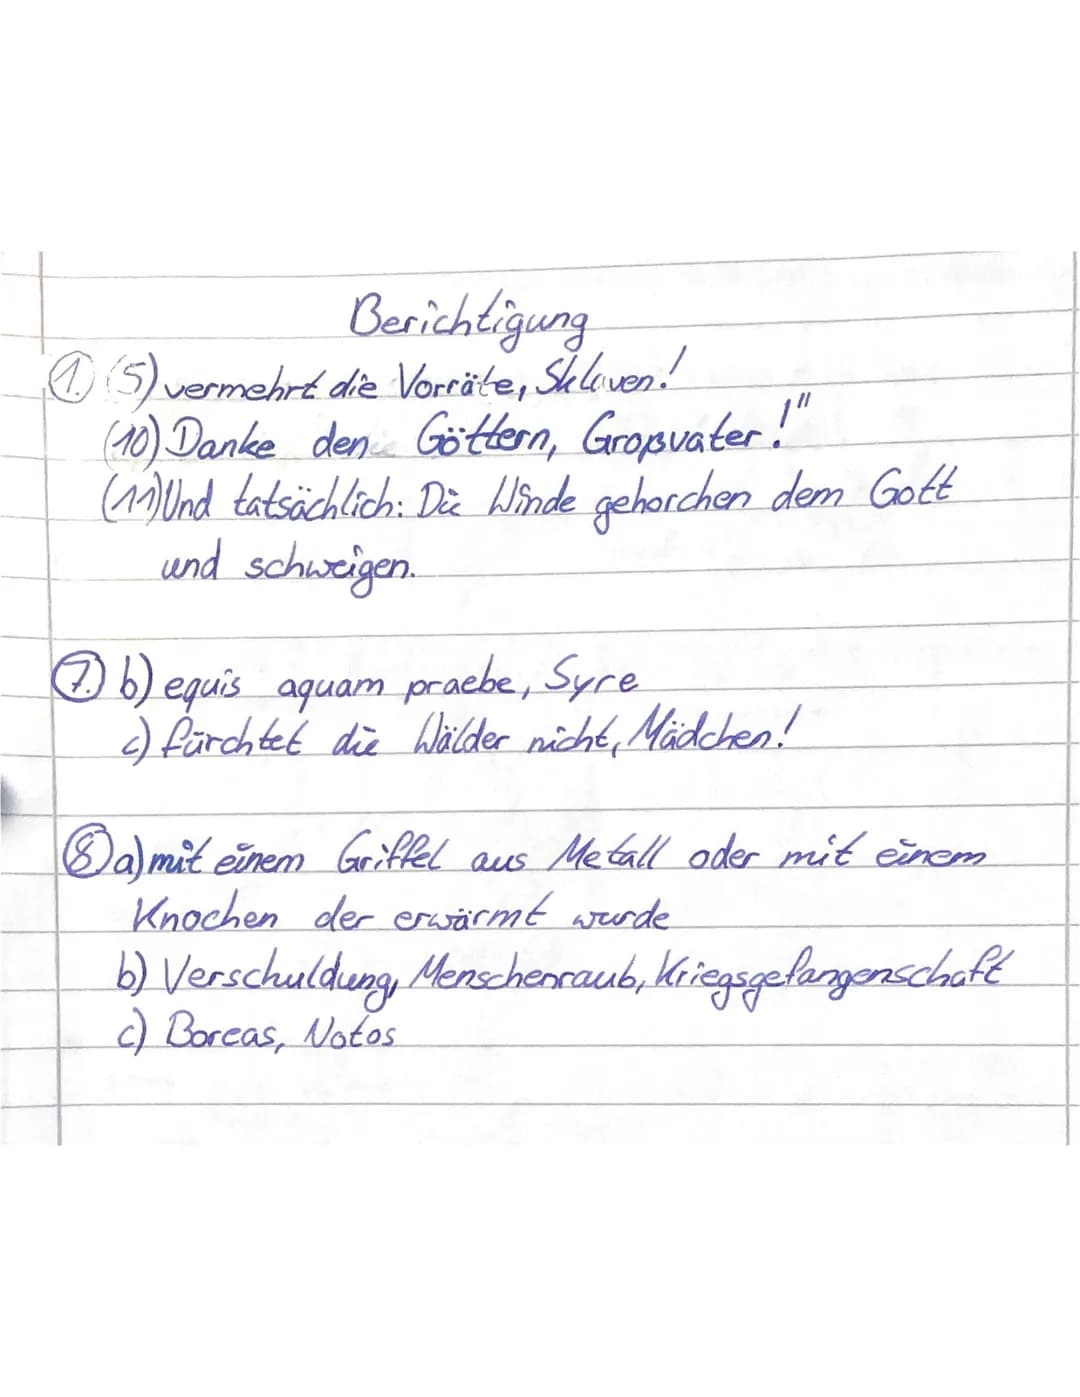 Berichtigung
1. (5) vermehrt die Vorräte, Sklaven!
(10) Danke den Göttern, Großvater!"
(11) Und tatsächlich: Die Winde gehorchen dem Gott
und schweigen.
7. b) equis aquam praebe, Syre
c) fürchtet die Wälder nicht, Mädchen!
8 a) mit einem Griffel aus Metall oder mit einem
Knochen der erwärmt wurde
b) Verschuldung, Menschenraub, Kriegsgefangenschaft
c) Boreas, Notos